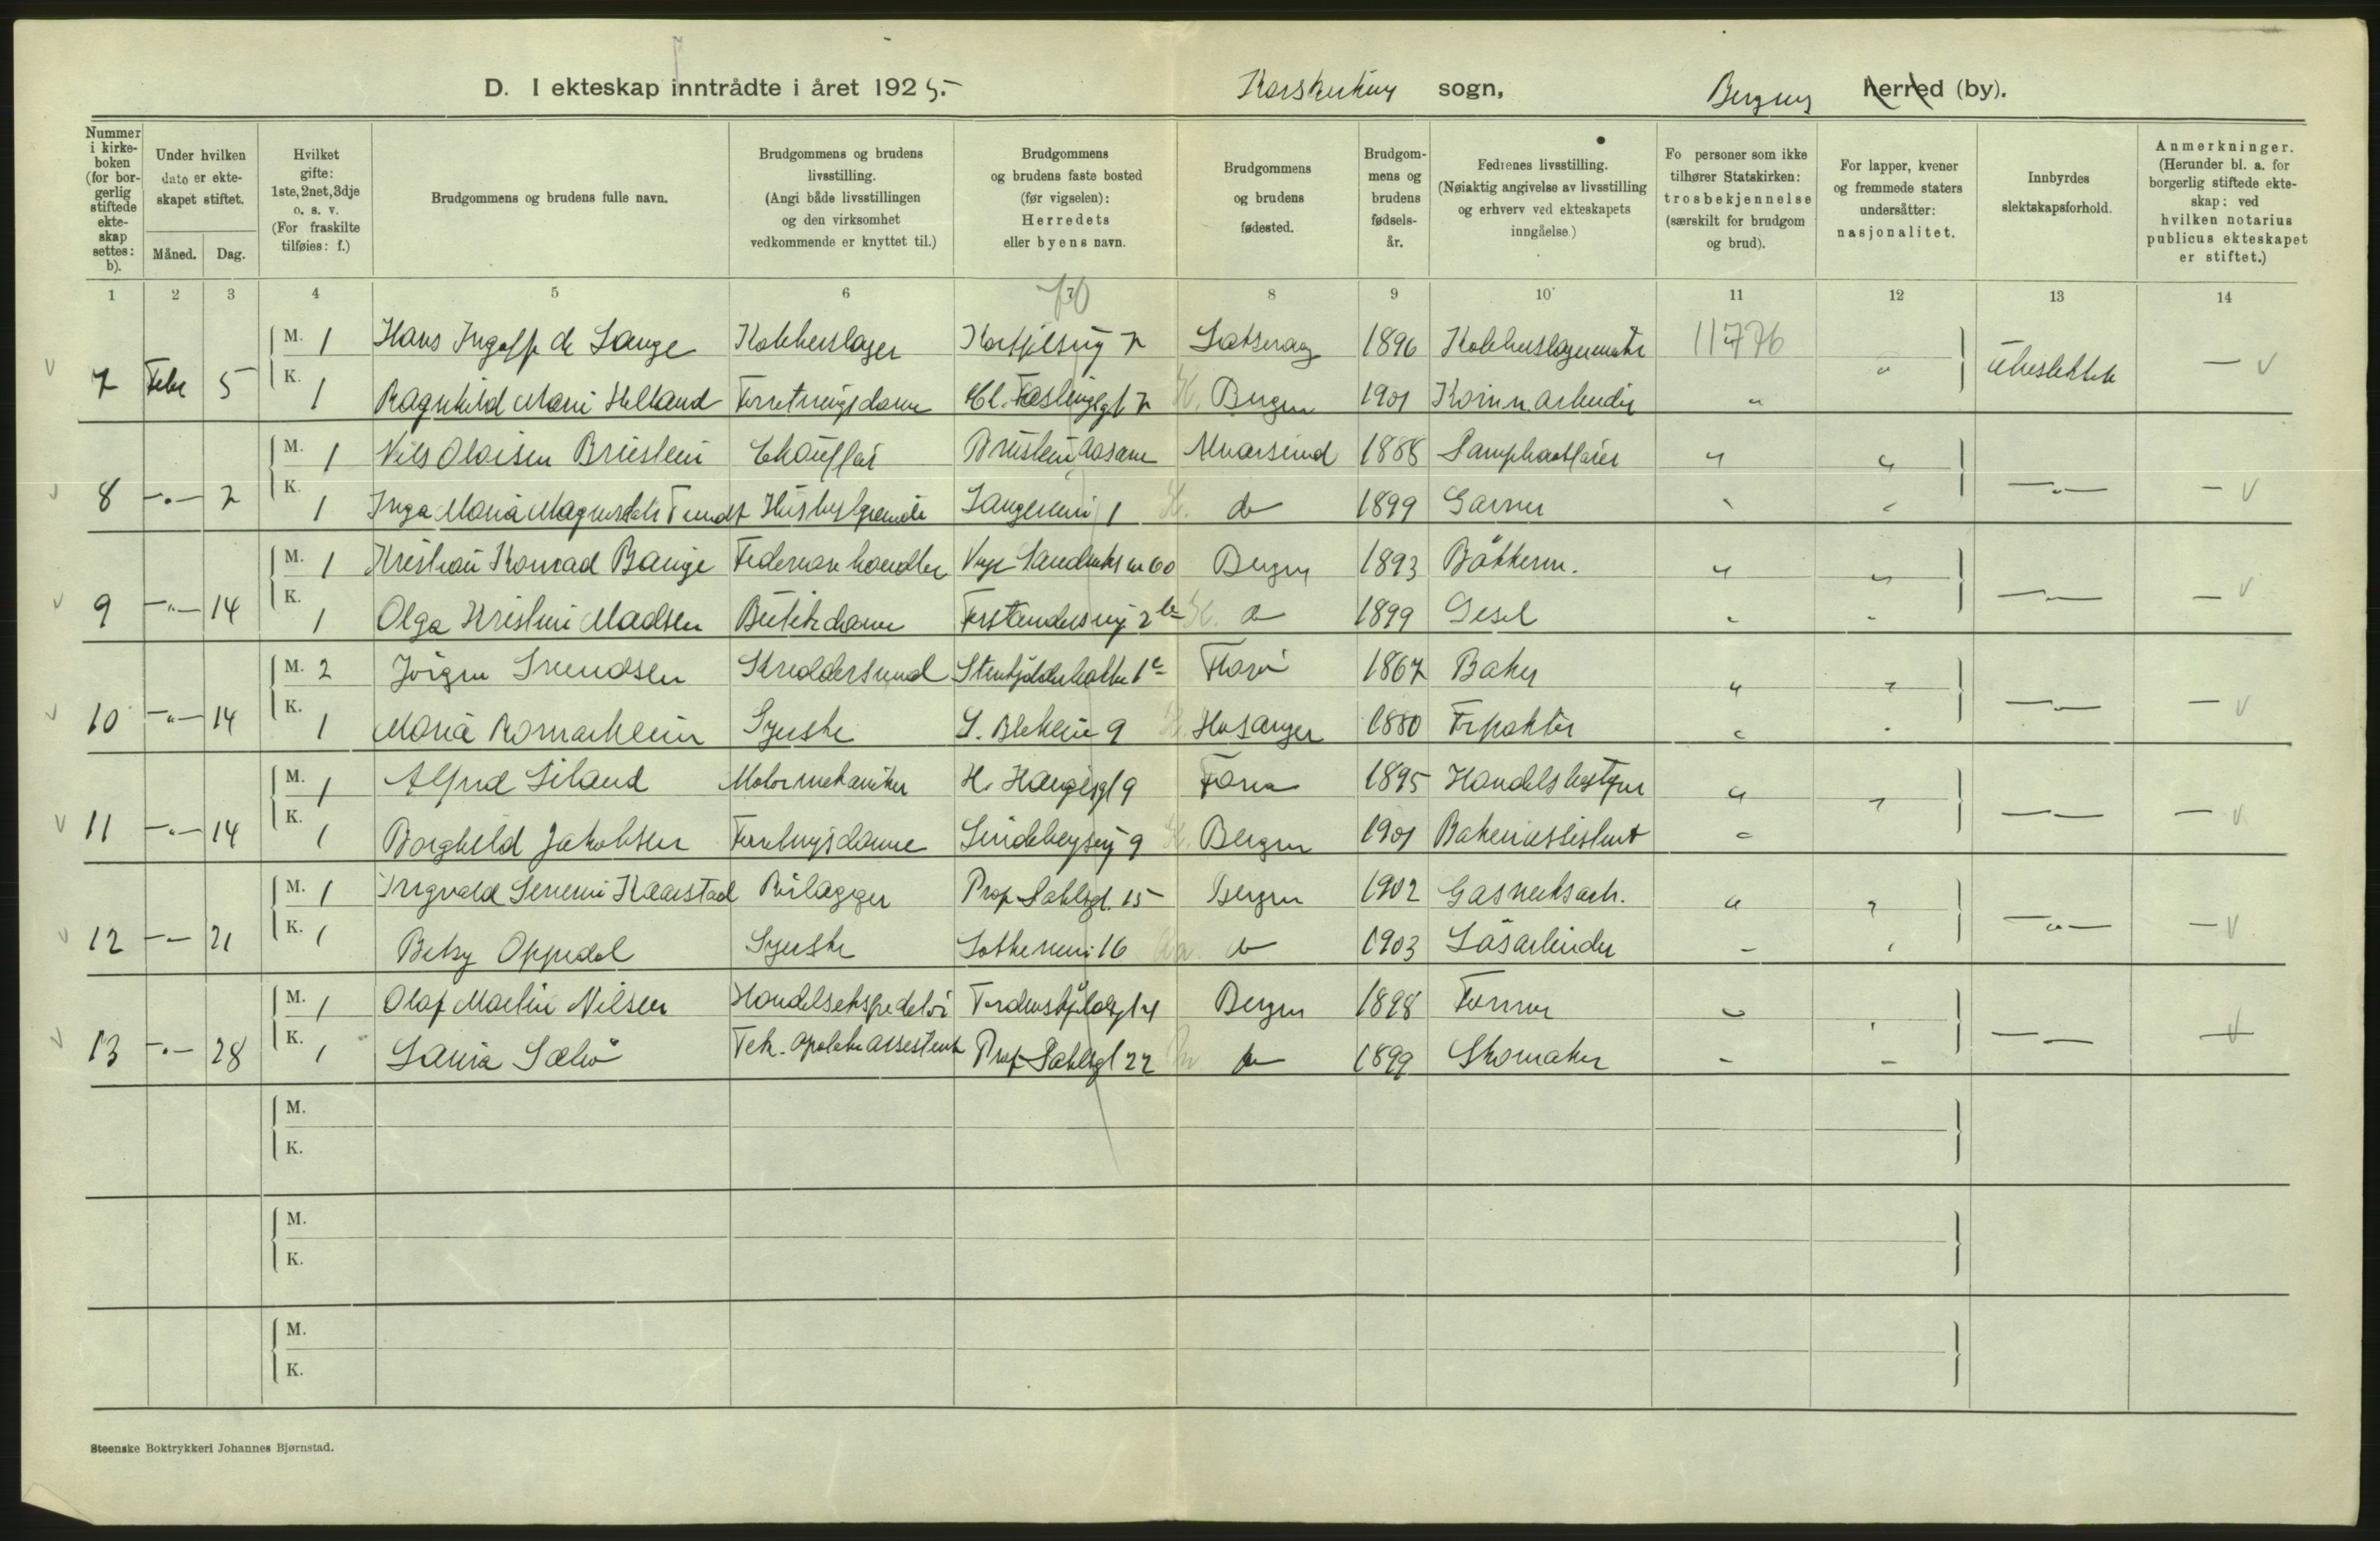 D. I ekteskap inntrådte i året 1925. Korskirken sogn, Bergens herred (by).
Nummer i kirke- boken (for bor- gerlig stiftede ekte- skap settes: b).
Under hvilken dato er ekte- skapet stiftet.
Måned. Dag.
Hvilket gifte: 1ste, 2net, 3dje o. s. v. (For fraskilte tilføies: f.)
Brudgommens og brudens fulle navn.
Brudgommens og brudens livsstilling. (Angi både livsstillingen og den virksomhet vedkommende er knyttet til.)
Brudgommens og brudens faste bosted (før vigselen): Herredets eller byens navn.
Brudgommens og brudens fødested.
Brudgom- mens og brudens fødsels- år.
Fedrenes livsstilling. (Nøiaktig angivelse av livsstilling og erhverv ved ekteskapets inngåelse.)
Fo personer som ikke tilhører Statskirken: trosbekjennelse (særskilt for brudgom og brud).
For lapper, kvener og fremmede staters undersåtter: nasjonalitet.
Innbyrdes slektskapsforhold.
Anmerkninger. (Herunder bl. a. for borgerlig stiftede ekte- skap: ved hvilken notarius publicus ekteskapet er stiftet.)
1 2 3 4 5 6 7 8 9 10 11 12 13 14
M. 1 Hans Ingolf de Lange Kobberslager 7 Laksevaag 1896 Kobberslagermester 11776 "
7 Febr 5 K. 1 Ragnhild Marie Helland Forretningsdame 7 H. Bergen 1901 Komm. arbeider " ubeslektet — v
M. 1 Nils Olaisen Brurstein Chauffør Aasane Alversund 1888 " "
8 -"- 7 K. 1 Inga Maria 1 H. do 1899 Garver " " —"— — v
M. 1 Kristian Konrad Bauge Federvarehandler 60 Bergen 1893 Bøkkerm. " "
9 -"- 14 K. 1 Olga Kristine Madsen Butikdame Forstandersvg 2b H. do 1899 Gesel " " —"— — v
M. 2 Jørgen Svendsen Skreddersvend 1c Florø 1867 Baker " "
10 -"- 14 K. 1 Maria Romarheim Syerske 9 H. Hosanger 1880 Forpakter " " —"— — v
M. 1 Alfred Liland Motormekaniker H. Haugesgt 9 Fana 1895 Handelsbestyrer " "
11 -"- 14 K. 1 Borghild Jakobsen Forretningsdame 9 H. Bergen 1901 " —"— — v
M. 1 Ingvald Severin Kaarstad Rørlægger Prof. Dahlsgt. 15 Bergen 1902 Gasverksarb. " "
12 -"- 21 K. 1 Betsy Oppedal Syerske 16 do 1903 Løsarbeider " " —"— — v
M. 1 Olaf Martin Nilsen Handelsekspeditør Tordenskjoldsgt 4 Bergen 1898 Former " "
13 -"- 28 K. 1 Laura Sælø Tek. apotekerassestent Prof. Dahlsgt 22 do 1899 Skomaker " " —"— — v
M.
K.
M.
K.
M.
K.
Steenske Boktrykkeri Johannes Bjørnstad.